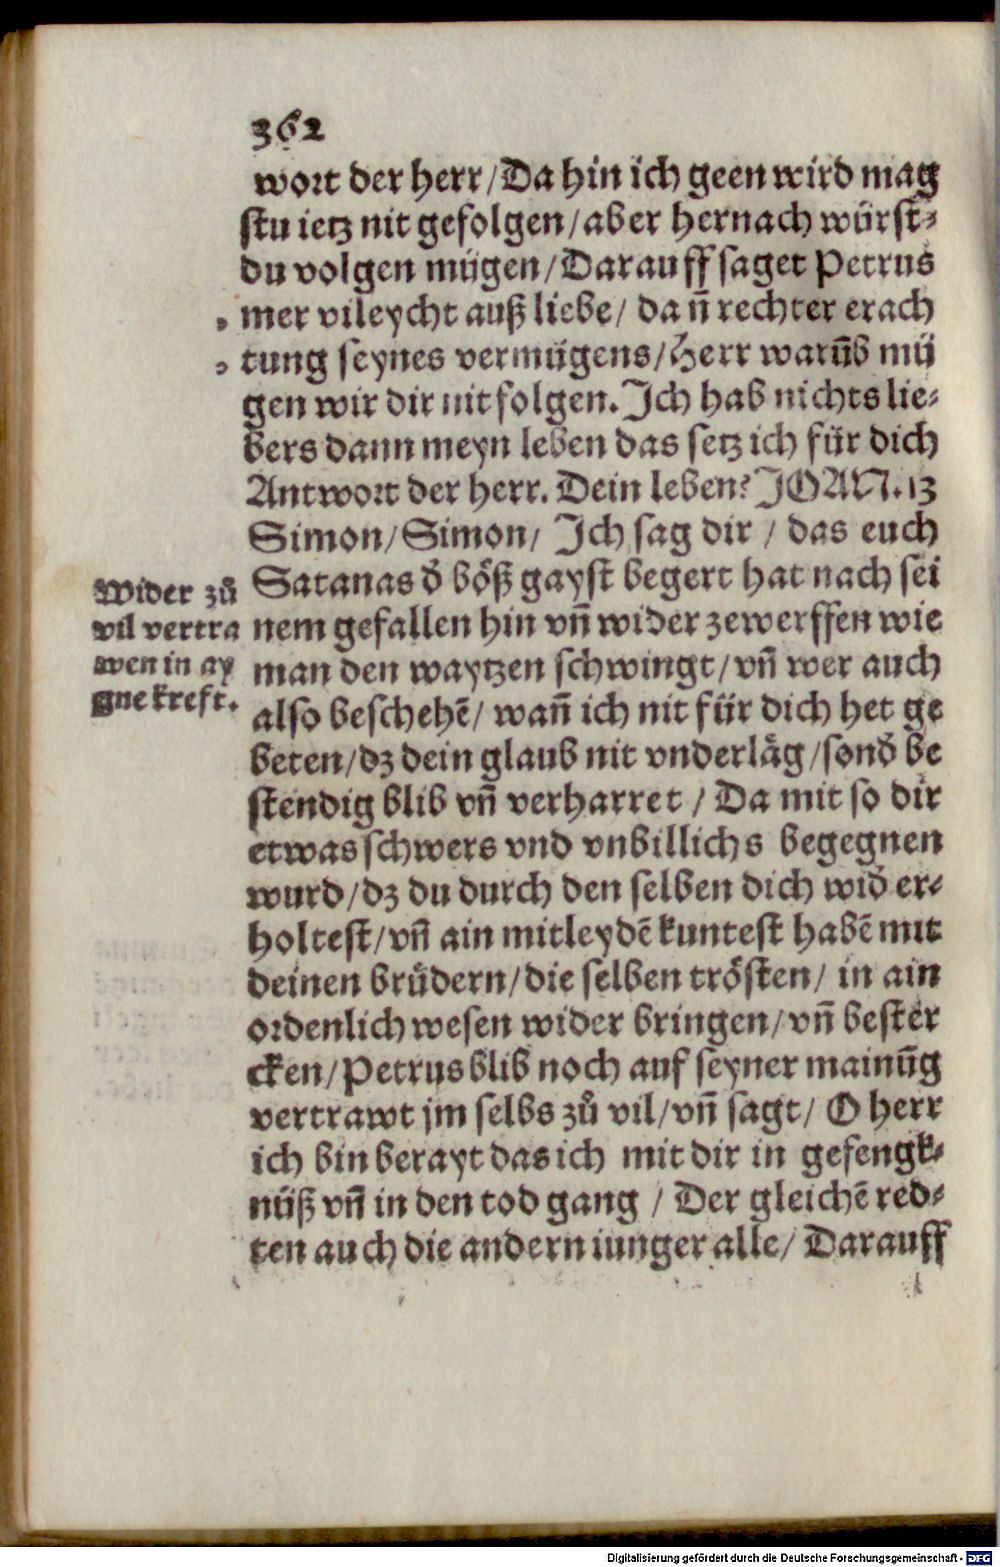 362
wort der herr/Da hin ich geen wird mag
stu ietz nit gefolgen/aber hernach würst-
du volgen mügen/Darauff saget Petrus
mer vileycht auß liebe/ dañ rechter erach
tung seynes vermügens/Herr warūb mü
gen wir dir nit folgen. Ich hab nichts lie-
bers dann meyn leben das setz ich für dich
Antwort der herr. Dein leben? JOAN. 13
Simon/Simon/ Ich sag dir / das euch
Satanas đ böß gayst begert hat nach sei
nem gefallen hin vñ wider zewerffen wie
man den waytzen schwingt/vñ wer auch
also beschehē/ wañ ich nit für dich het ge
beten/dz dein glaub nit vnderläg/sonđ be
stendig blib vñ verharret / Da mit so dir
etwas schwers vnd vnbillichs begegnen
wurd/dz du durch den selben dich wiđ er-
holtest/vñ ain mitleydē kuntest habē mit
deinen brüdern/die selben trösten/ in ain
ordenlich wesen wider bringen/vñ bester
cken/Petrus blib noch auf seyner mainūg
vertrawt jm selbs zů vil/vñ sagt/ O herr
ich bin berayt das ich mit dir in gefengk-
nüß vñ in den tod gang / Der gleichē red-
ten auch die andern iunger alle/ Darauff
Wider zů
vil vertra
wen in ay
gne kreft.
Digitalisierung gefördert durch die Deutsche Forschungsgemeinschaft - DFG